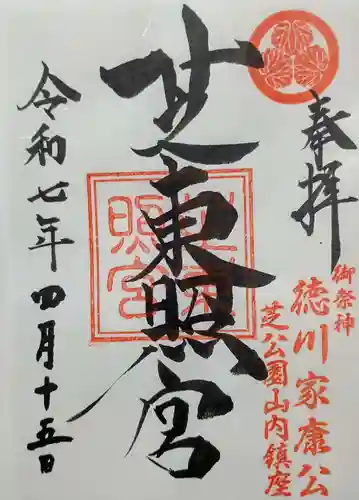 奉拝
御祭神
徳川家康公
芝公園山内鎮座
芝東照宮
令和七年四月十五日